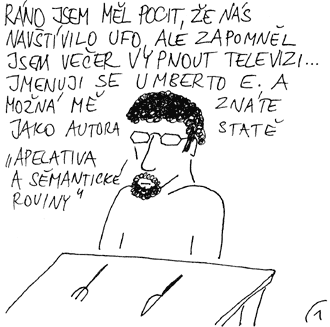 RÁNO JSEM MĚL POCIT, ŽE NÁS
NAVŠTÍVILO UFO, ALE ZAPOMNĚL
JSEM VEČER VYPNOUT TELEVIZI...
JMENUJI SE UMBERTO E. A
MOŽNÁ MĚ ZNÁTE
JAKO AUTORA STATĚ
„APELATIVA
A SÉMANTICKÉ
ROVINY“
1